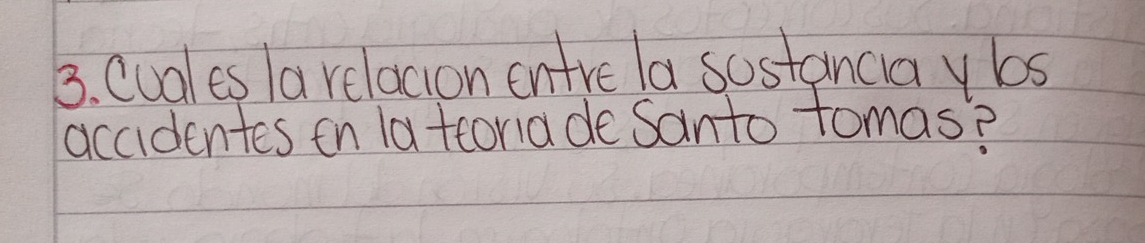 3. Cual es la relacion entre la sustancia y los
accidentes en la teoria de Santo tomas?